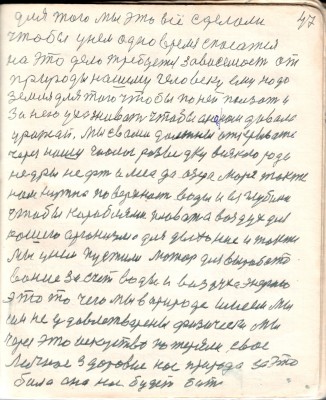 для того мы это всё сделали 47
чтобы умело одновремя спасатся
на это дело требуется зависемость от
природы нашему человеку ему надо
земля для того чтобы по ней ползат и
за нею ухаживать чтобы она давала
уражай. Мы свами должны открывать
через нашу разведку всякого рода
недра нефть и леса да озера моря также
нам нужна поверхность воды и её глубина
чтобы кораблями плавать а воздух для
нашего организма для дыхание и также
мы умеем пустим мотор для выработо
вание за счёт воды и воздуха энергию
это то чего мы в природе имеем мы
им не удовлетворены физически мы
через это искуство потеряли свое
личное здоровие нас природа за это
била она нас будет бить